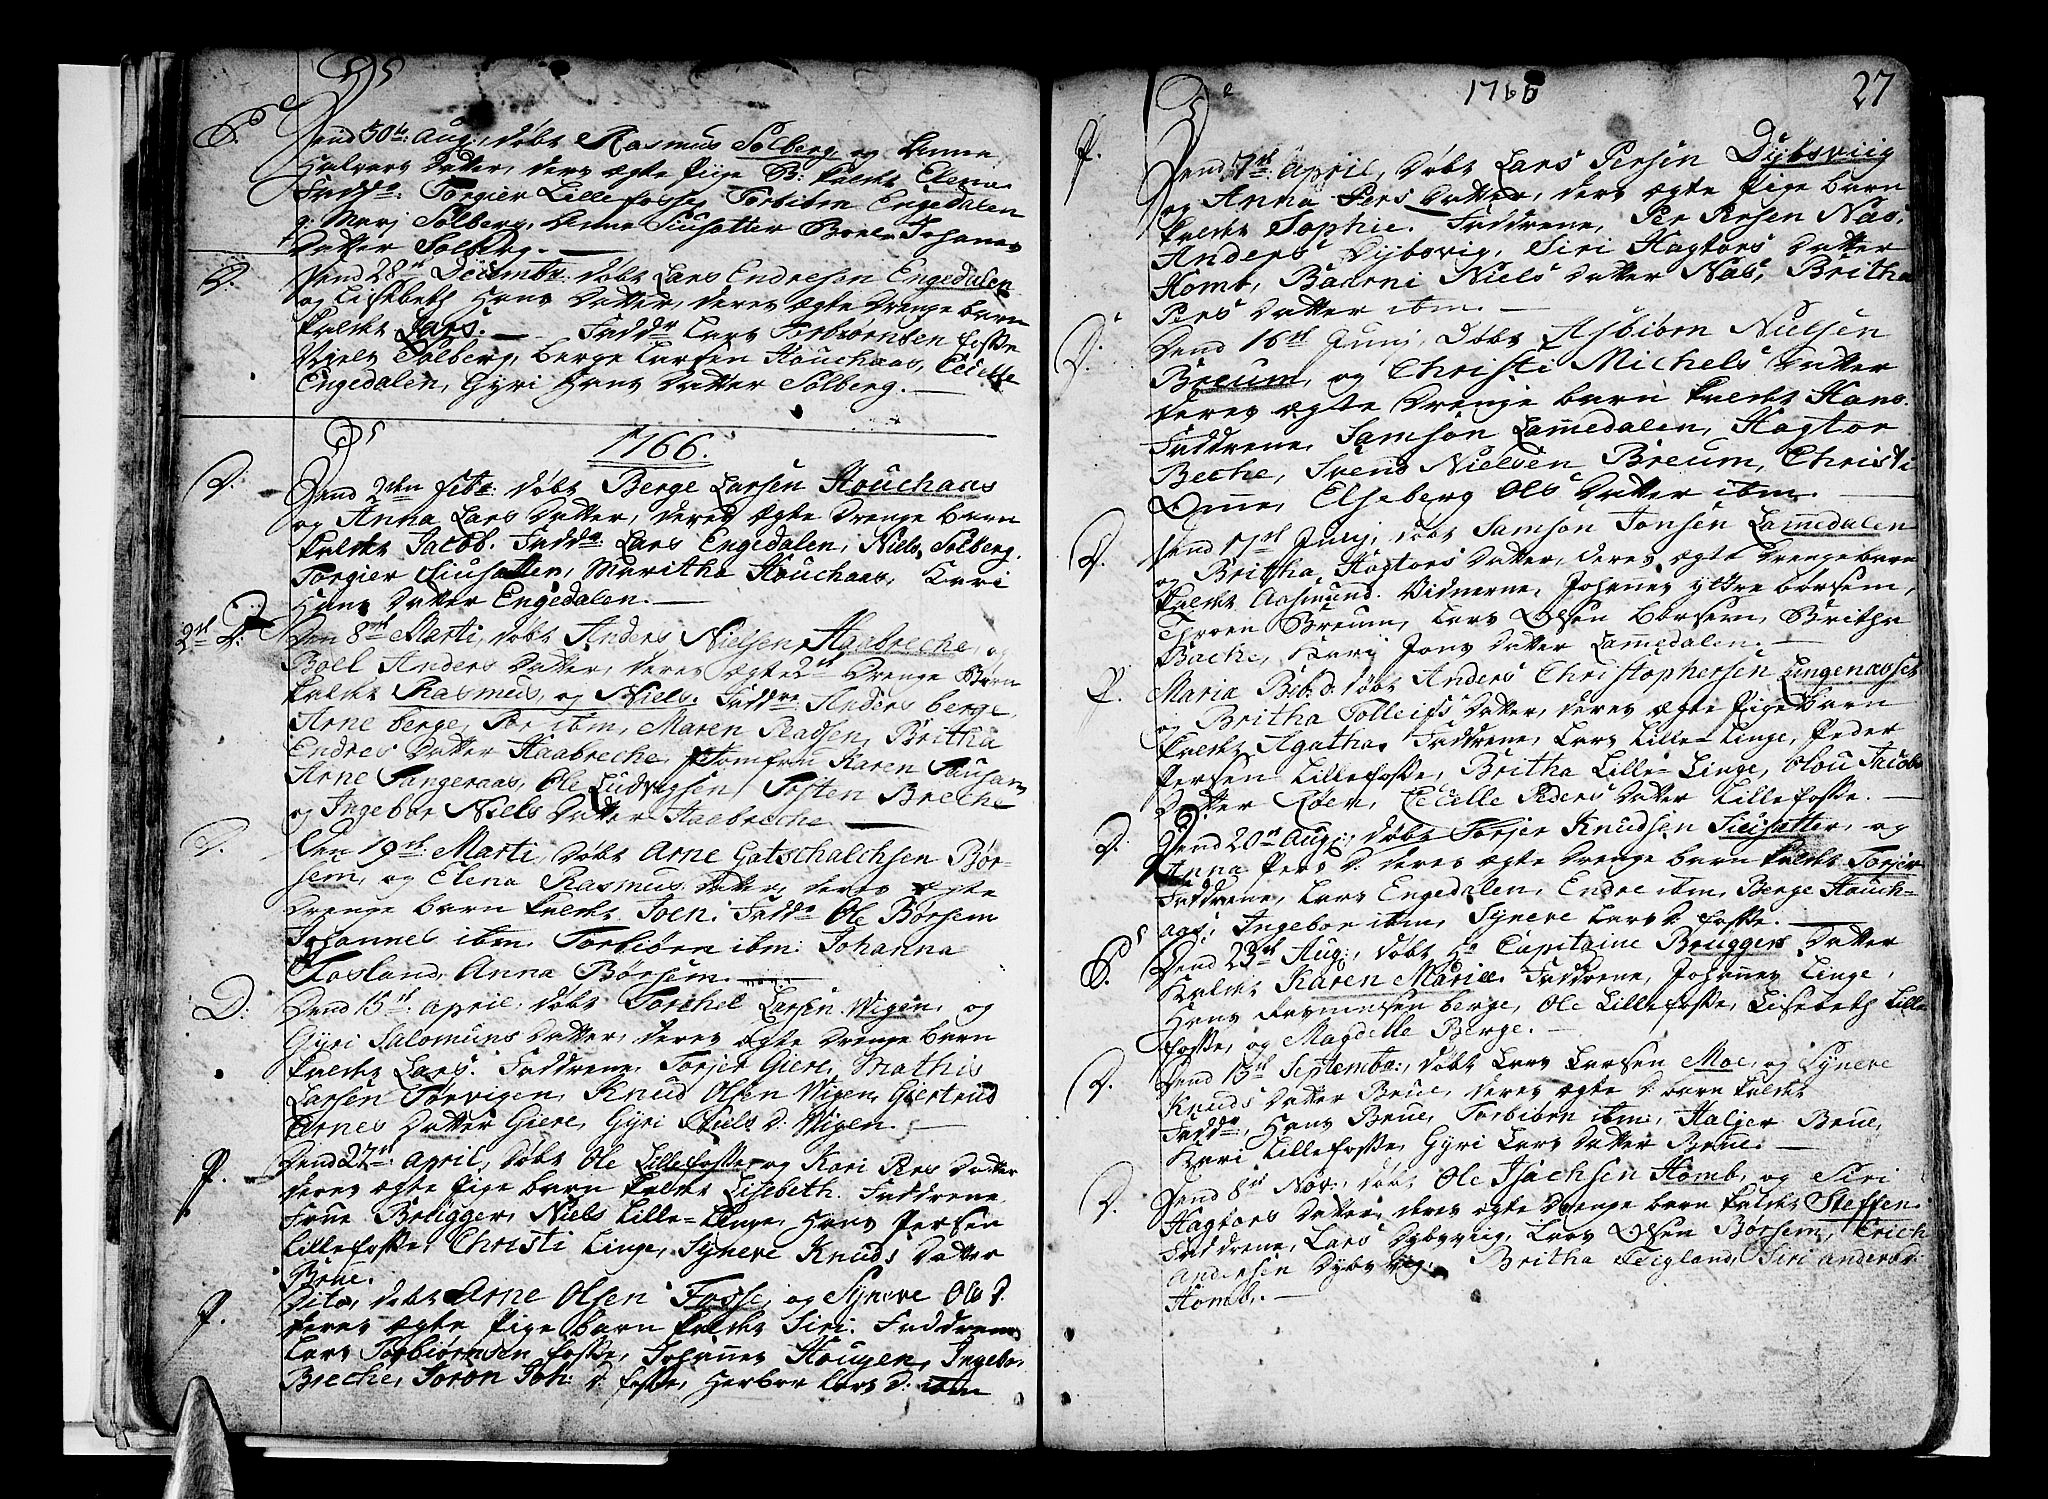 P. Dend 30te Aug: døbt Rasmus Solberg og Anna
Halvors Datter, deres ægte Pige B: kaldet Elena
Fadd: Torgier Lillefosse, Torbiørn Engedalen
Solberg, Anna Siusætter Boel Johannes
Datter Solberg.
D. Dend 28de Decembr. døbt Lars Endresen Engedalen
og Lisebeth Hans Datter, deres ægte Drenge barn
kaldet Lars. Fadd: Lars Torbiørnsen Fosse
Niels Solberg, Berge Larsen Houchaas, Cecille
Engedalen, Gyri Hans Datter Solberg.
1766.
D. Dend 2den Febr: døbt Berge Larsen Houchaas
og Anna Lars Datter, deres ægte Drenge Barn
kaldet Jacob. Fadd: Lars Engedalen, Niels Solberg.
Torgier Siusætter, Maritha Houchaas, Kari
Hans Datter Engedalen.
2de D: Den 8de Marti, døbt Anders Nielsen Haabreche, og
Boel Anders Datter, deres ægte 2de Drenge Børn
kaldet Rasmus, og Niels. Fadd: Anders Berge,
Arne berge, Per ibm, Maren Radsen, Britha
Endres Datter Haabreche, Jomfru Karen
Arne Tangeraas, Ole Ludvigsen, Tosten Breche
og Ingebor Niels Datter Haabreche
D. Den 19de Marti, døbt Arne Gotschalchsen Bør-
sem, og Elena Rasmus Datter, deres ægte
Drenge barn kaldet Joen. Fadd: Ole Børsem
Johannes ibm. Torbiørn ibm: Johanna
Anna Børsem.
D: Dend 15de April døbt Torchel Larsen Wigen, og
Gyri Salomons Datter, deres ægte Drenge Barn
kaldet Lars. Faddrene, Torjer Giere, Mathis
Larsen Tørvigen, Knud Olsen Wigen, Giertrud
Arnes Datter Giere, Gyri Niels D: Wigen.
P. Dend 27de April, døbt Ole Lillefosse, og Kari Pers Datter
deres ægte Pige barn kaldet Lisebeth. Faddrene
Frue Brugger, Niels Lille-Linge, Hans Persen
Lillefosse, Christi Linge, Synneve Knuds Datter
Brue.
P. Dito, døbt Arne Olsen Fosse, og Synneve Ols D.
deres ægte Pige barn kaldet Siri. Faddrene
Lars Torbiørnsen Fosse, Johannes Hougen, Ingebor
Breche, Joron Joh: D: Fosse, Herbor Lars D: ibm
1766 27
P. Dend 7de April, døbt Lars Persen Dybsviig
og Anna Pers Datter, deres ægte Pige barn
kaldet Sophie. Faddrene, Per Persen Nas,
Anders Dybsvig, Siri Hagtors Datter
Homb, Baarni Niels Datter Nas, Britha
Pers Datter ibm.
D. Dend 16de Junj, døbt Asbiørn Nielsen
Breum, og Christi Michels Datter
deres ægte Drenge barn kaldet Hans.
Faddrene, Samson Lamedalen, Hagtor
Beche, Svend Nielsen Breum, Christi
Elseberg Ols Datter ibm.
D. Dend 17de Junj, døbt Samson Jonsen Lamedalen
og Britha Hagtors Datter, deres ægte Drengebarn
kaldet Aasmund. Vidnerne, Johannes yttre børsem,
Throen Breum, Lars Olsen Børsem, Britha
Bache, Kari Jons Datter Lamedalen.
P. Maria døbt Anders Christophersen Lingenæsset
og Britha Tolleifs Datter, deres ægte Pige Barn
kaldet Agatha. Faddrene, Lars Lille-Linge, Peder
Persen Lillefosse, Britha Lille-Linge, Olou Jacobs
Datter Røen, Cecille Peders Datter Lillefosse.
D. Dend 20de Aug: døbt Torjer Knudsen Siusætter, og
Anna Pers D. deres ægte Drenge barn kaldet Torjer
Faddrene, Lars Engedalen, Endre ibm, Berge Houch-
aas, Ingebor ibm, Synneve Lars D. Fosse.
P. Dend 23de Aug: døbt Hr Capitaine Bruggers Datter
kaldet Karen Maria. Faddrene, Johannes Linge,
Hans Rasmussen berge, Ole Lillefosse, Lisebeth Lille
fosse, og Magdelle Berge.
D. Dend 15de Septembr:, døbt Lars Larsen Moe, og Synneve
Knuds Datter Brue, deres ægte D. barn kaldet
Fadd:, Hans Brue, Torbiørn ibm:, Halger Brue,
Kari Lillefosse, Gyri Lars Datter Brue.
D. Dend 8de Nov:, døbt Ole Isachsen Homb, og Siri
Hagtors Datter, deres ægte Drenge barn kaldet Steffen.
Faddrene, Lars Dybsviig, Lars Olsen Børsem, Erich
Andersen Dybsvig, Britha Teigland, Siri
Homb.